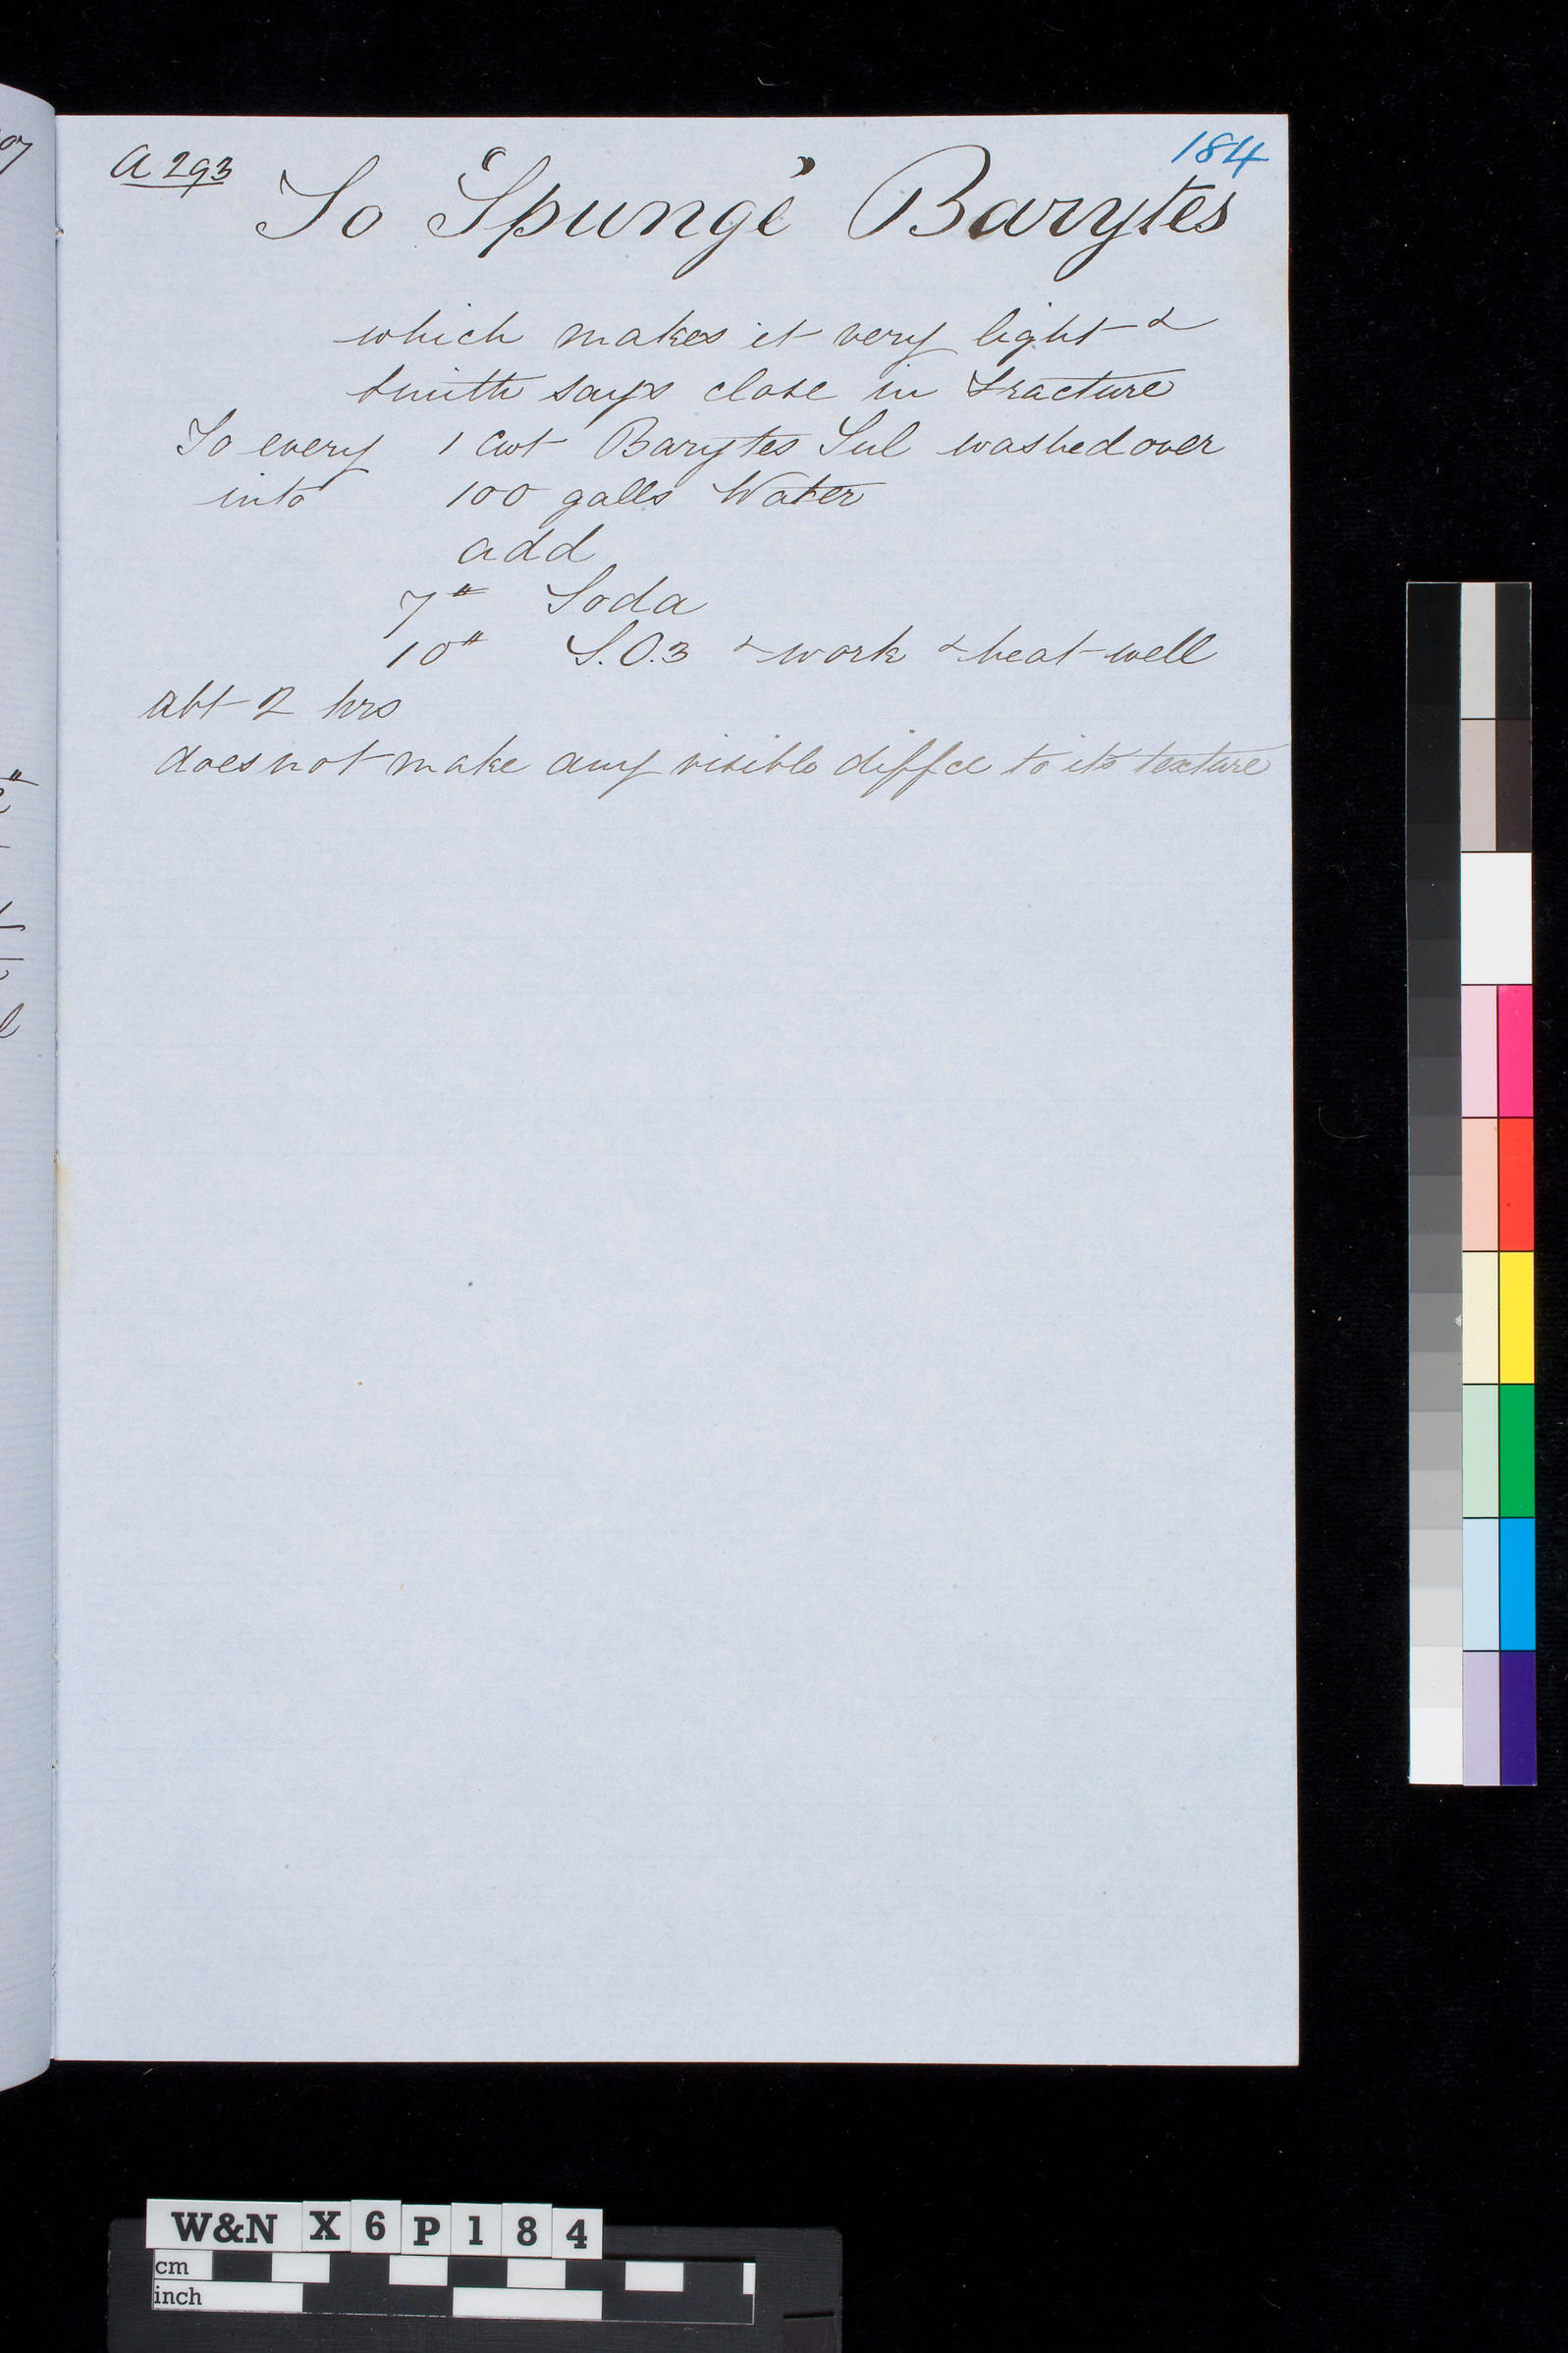 A 293
184
To "Spunge" Barytes
which makes it very light &
Smith says close in Fracture
To every 1 Cwt Barytes Sul washed over
into 100 galls Water
add
7# Soda
10# S.O.3 & work & heat well
abt 2 hrs
does not make any visible diffce to its texture
W&N X6P184
cm
inch